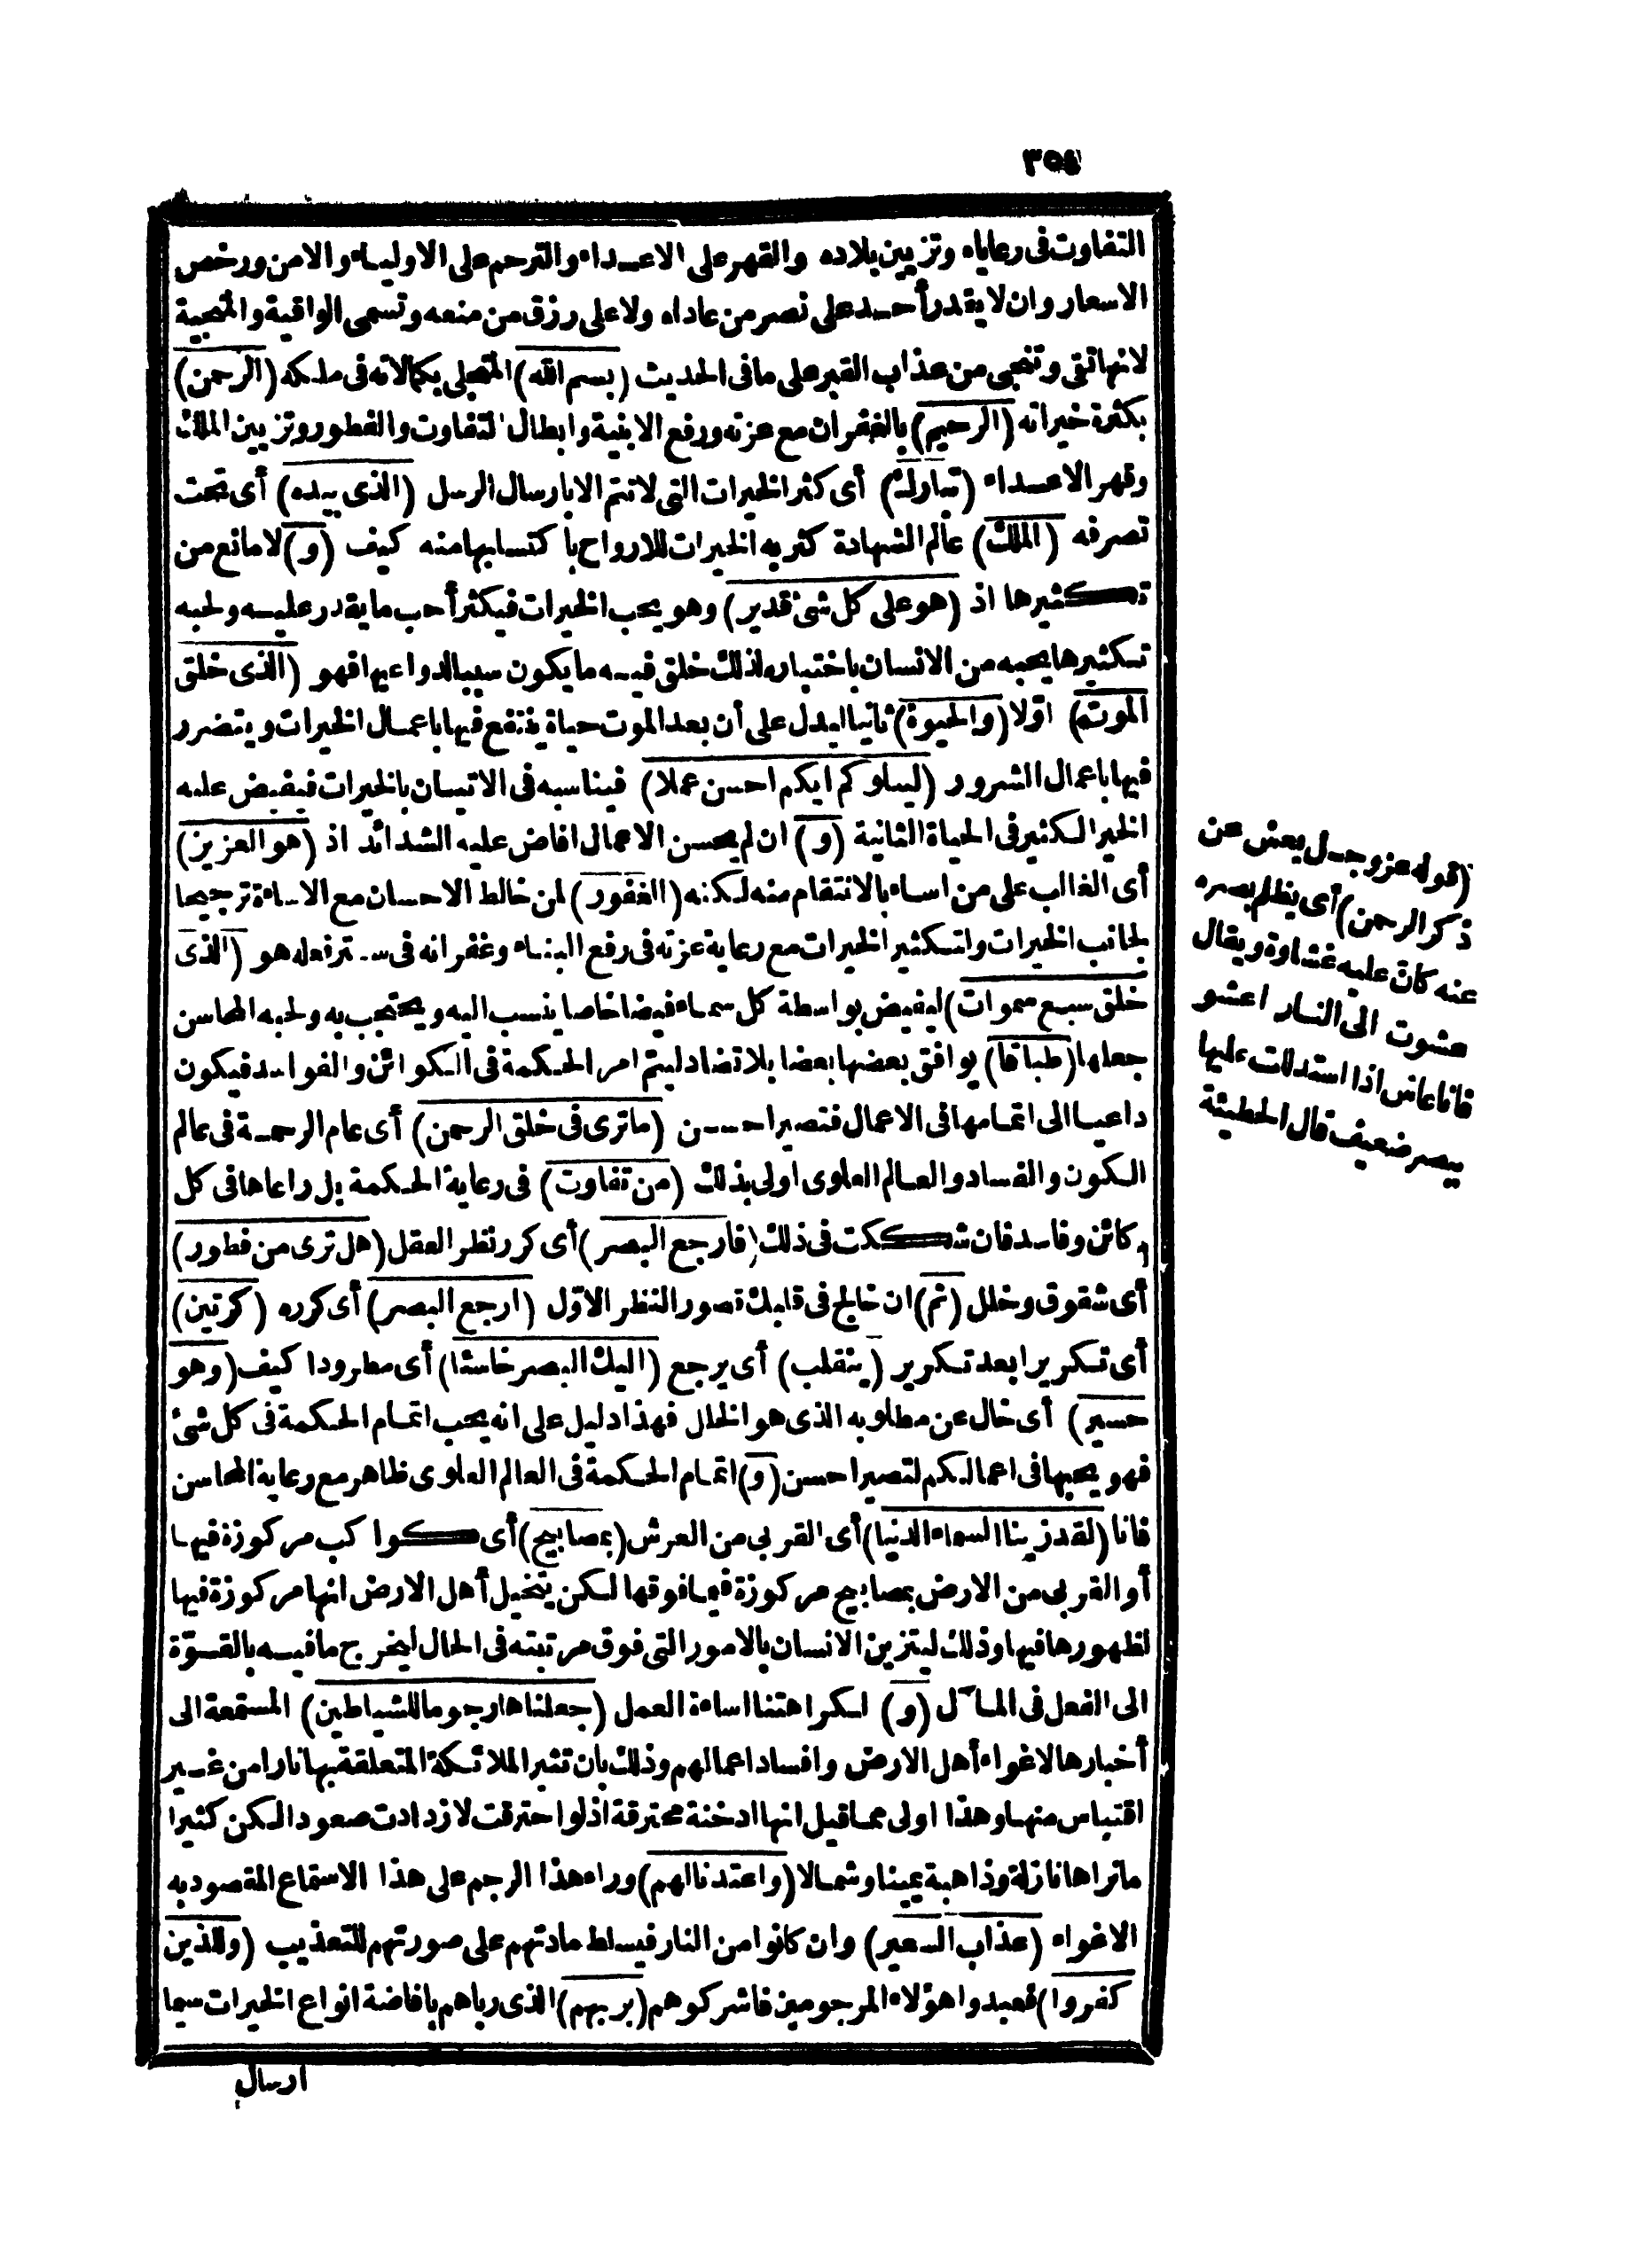 ٣٥٤
التفاوت فى رعاياه وتزيين بلاده والقهر على الاعداء والترحم على الاولياء والامن ورخص
الاسعار وان لا يقدر أحد على نصر من عاداه ولا على رزق من منعه وتسمى الواقية والمنجية
لانها تقى وتنجى من عذاب القبر على ما فى الحديث (بسم الله) المتجلى بكمالاته فى ملكه (الرحمن)
بكثرة خيراته (الرحيم) بالغفران مع عزته ورفع الابنية وابطال التفاوت والفطور وتزيين الملك
وقهر الاعداء (تبارك) أى كثر الخيرات التى لا تتم الا بارسال الرسل (الذى بيده) أى تحت
تصرفه (الملك) عالم الشهادة كثر به الخيرات للارواح باكتسابها منه كيف (و) لا مانع من
تكثيرها اذ (هو على كل شئ قدير) وهو يحب الخيرات فيكثر أحب ما يقدر عليه ولحبه
تكثيرها يحبه من الانسان باختياره لذلك خلق فيه ما يكون سببا لدواعيها فهو (الذى خلق
الموت) اوّلا (والحيوة) ثانيا ليدل على أن بعد الموت حياة ينتفع فيها باعمال الخيرات ويتضرر
فيها باعمال الشرور (ليبلوكم ايكم احسن عملا) فيناسبه فى الاتيان بالخيرات فيفيض عليه
الخير الكثير فى الحياة الثانية (و) ان لم يحسن الاعمال افاض عليه الشدائد اذ (هو العزيز)
أى الغالب على من اساء بالانتقام منه لكنه (الغفور) لمن خالط الاحسان مع الاساءة ترجيحا
لجانب الخيرات ولتكثير الخيرات مع رعاية عزته فى رفع البناء وغفرانه فى ستر فعله هو (الذى
خلق سبع سموات) ليفيض بواسطة كل سماء فيضا خاصا ينسب اليه ويحتجب به ولحبه المحاسن
جعلها (طباقا) يوافق بعضها بعضا بلا تضاد ليتم امر الحكمة فى الكوائن والفواسد فيكون
داعيا الى اتمامها فى الاعمال فتصير احسن (ماترى فى خلق الرحمن) أى عام الرحمة فى عالم
الكون والفساد والعالم العلوى اولى بذلك (من تفاوت) فى رعاية الحكمة بل راعاها فى كل
كائن وفاسد فان شككت فى ذلك (فارجع البصر) أى كرر نظر العقل (هل ترى من فطور)
أى شقوق وخلل (ثم) ان خالج فى قلبك قصور النظر الاوّل (ارجع البصر) أى كرره (كرتين)
أى تكريرا بعد تكرير (ينقلب) أى يرجع (اليك البصر خاسئا) أى مطرودا كيف (وهو
حسير) أى خال عن مطلوبه الذى هو الخلل فهذا دليل على انه يحب اتمام الحكمة فى كل شئ
فهو يحبها فى اعمالكم لتصير احسن (و) اتمام الحكمة فى العالم العلوى ظاهر مع رعاية المحاسن
فانا (لقد زينا السماء الدنيا) أى القربى من العرش (بمصابيح) أى كواكب مركوزة فيها
أو القربى من الارض بمصابيح مركوزة فيما فوقها لكن يتخيل أهل الارض انها مركوزة فيها
لظهورها فيها وذلك ليتزين الانسان بالامور التى فوق مرتبته فى الحال ليخرج ما فيه بالقوّة
الى الفعل فى المآل (و) لكراهتنا اساءة العمل (جعلناها رجوما للشياطين) المستمعة الى
أخبارها لاغواء أهل الارض وافساد اعمالهم وذلك بان تثير الملائكة المتعلقة بها نارا من غير
اقتباس منها وهذا اولى مما قيل انها ادخنة محترقة اذ لو احترقت لازدادت صعودا لكن كثيرا
ماتراها نازلة وذاهبة يمينا وشمالا (واعتدنا لهم) وراء هذا الرجم على هذا الاستماع المقصود به
الاغواء (عذاب السعير) وان كانوا من النار فيسلط مادتهم على صورتهم للتعذيب (وللذين
كفروا) فعبدوا هؤلاء المرجومين فاشركوهم (بربهم) الذى رباهم بافاضة انواع الخيرات سيما
ارسال
(قوله عز وجل يعش عن
ذكر الرحمن) أى يظلم بصره
عنه كأن عليه غشاوة ويقال
عشوت الى النار اعشو
فانا عاش اذا استدللت عليها
ببصر ضعيف قال الحطيئة